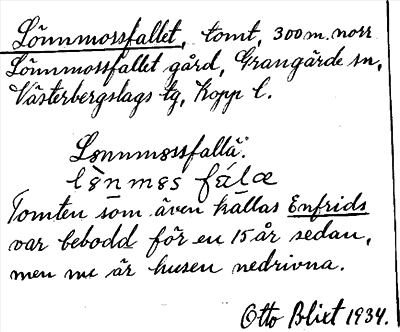 Lönnmossfallet, tomt, 300 m. norr
Lönnmossfallet gård, Grangärde sn,
Västerbergslags tg, Kopp l.
Lønnmøssfallä.
lø̀nmøs fálæ
Tomten som även kallas Enfrids
var bebodd för en 15 år sedan,
men nu är husen nedrivna.
Otto Blixt 1934.